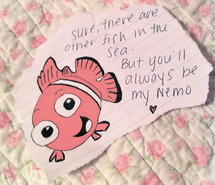 sure, there are
other fish in the
sea.
But you'll
always be
my Nemo